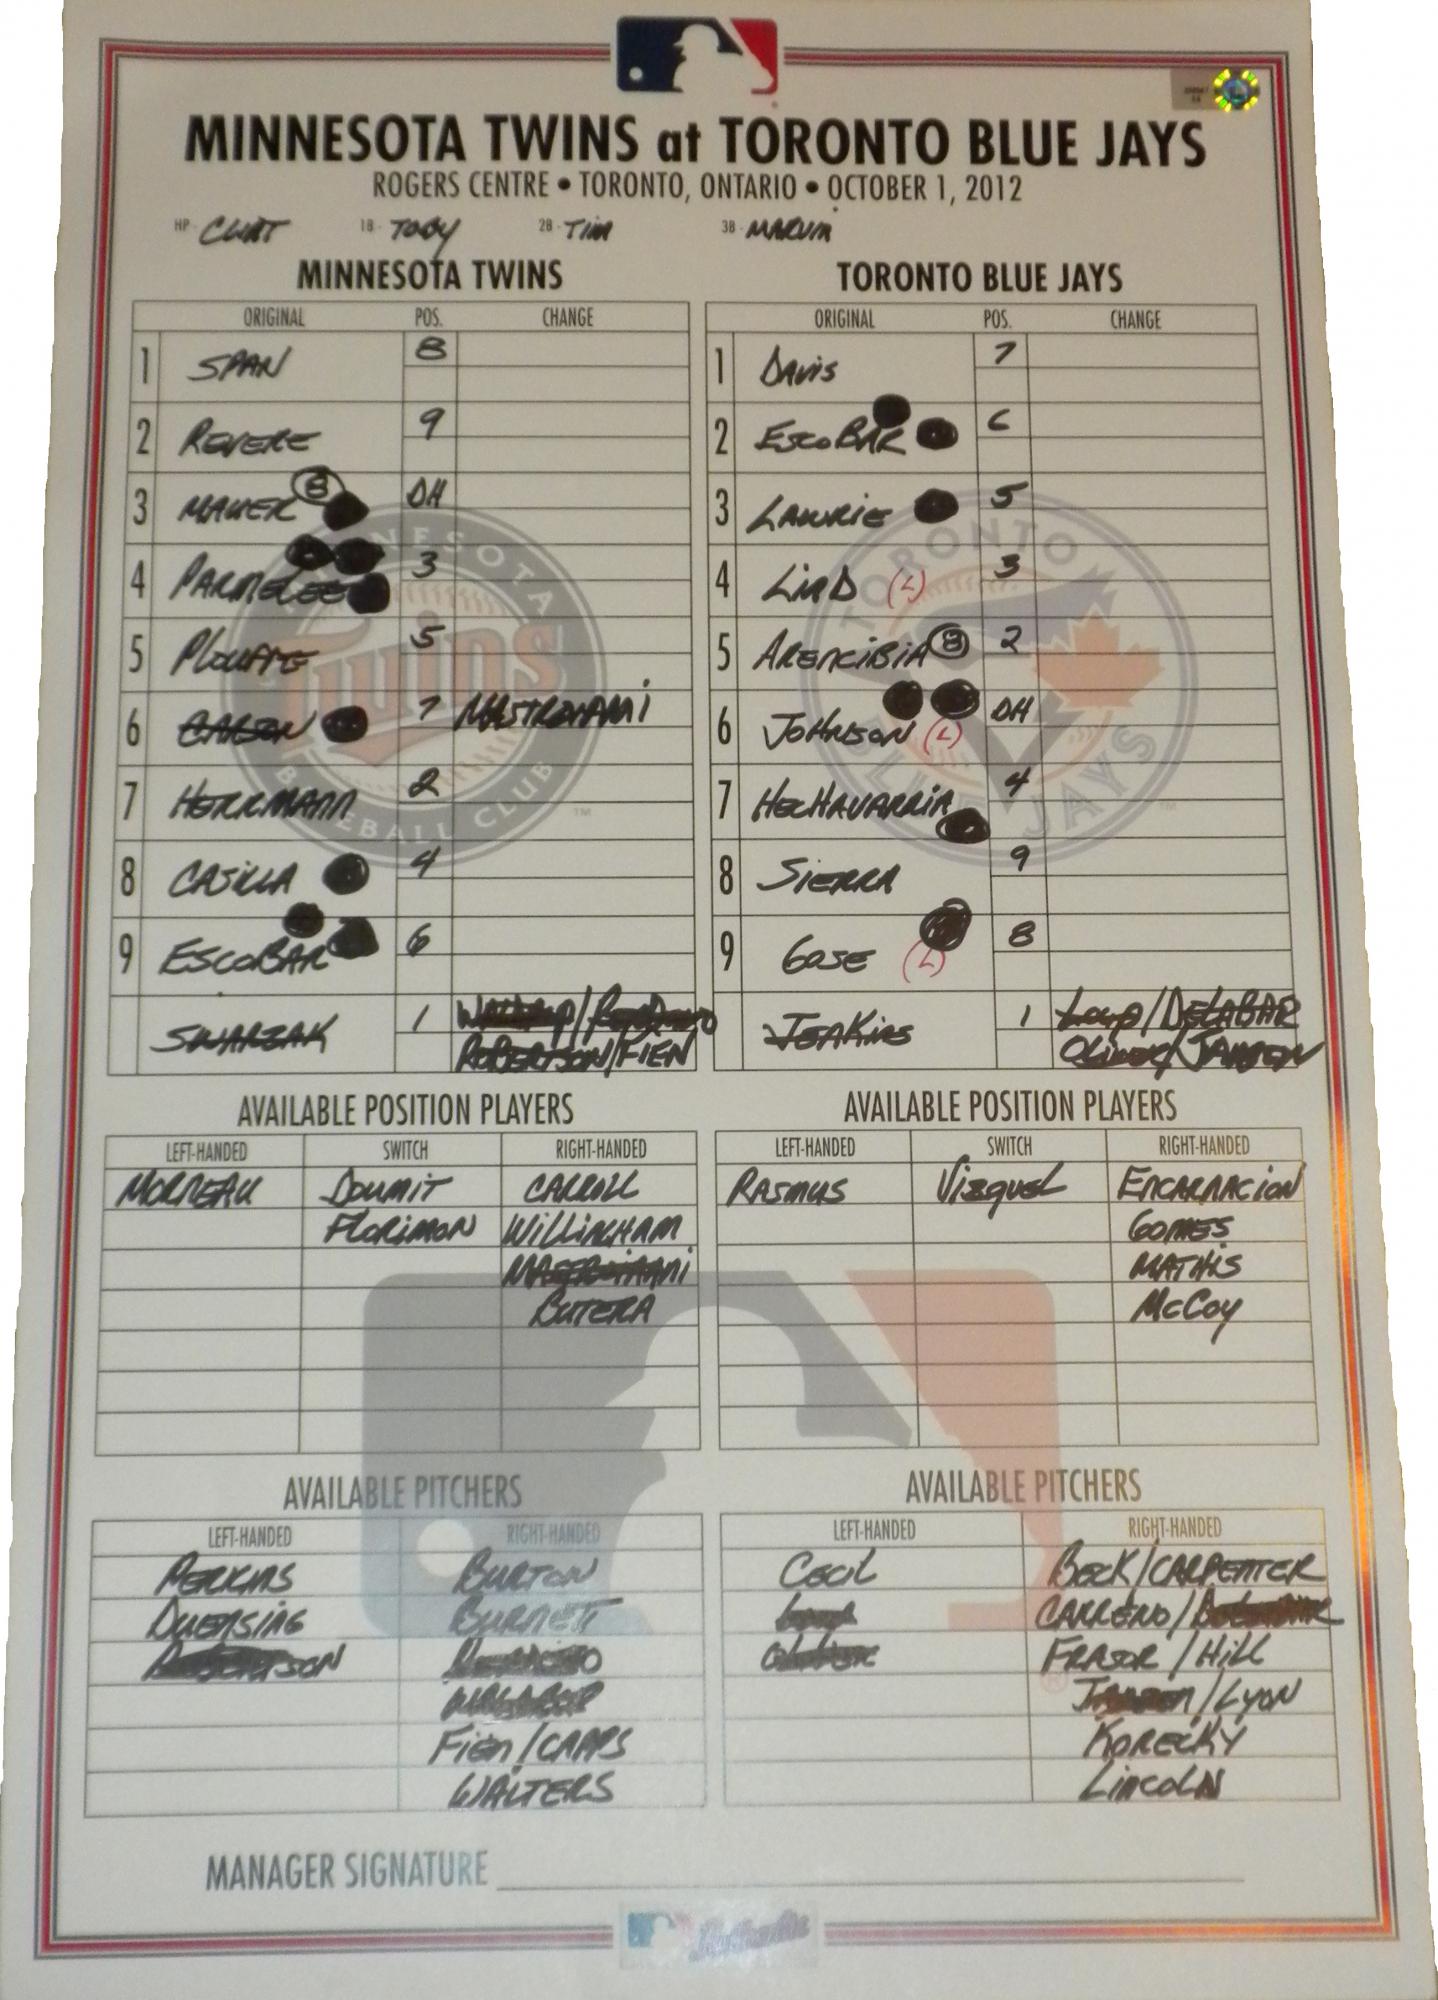 MINNESOTA TWINS at TORONTO BLUE JAYS
ROGERS CENTRE • TORONTO, ONTARIO • OCTOBER 1, 2012
HP - CLINT 1B - TOBY 2B - TIM 3B - MARVIN
MINNESOTA TWINS
ORIGINAL POS. CHANGE
1 SPAN 8
2 REVERE 9
3 MAUER 8 DH
4 PARMELEE 3
5 PLOUFFE 5
6 CARSON 7 MASTROIANNI
7 HERRMANN 2
8 CASILLA 4
9 ESCOBAR 6
SWARZAK 1
ROBERTSON/FIEN
TORONTO BLUE JAYS
ORIGINAL POS. CHANGE
1 DAVIS 7
2 ESCOBAR 6
3 LAWRIE 5
4 LIND (L) 3
5 ARENCIBIA 8 2
6 JOHNSON (L) DH
7 HECHAVARRIA 4
8 SIERRA 9
9 GOSE (L) 8
JENKINS 1 LOUP/DELABAR
OLIVER/JANSSEN
MINNESOTA
Twins
BASEBALL CLUB
TM
TORONTO
BLUE JAYS
TM
AVAILABLE POSITION PLAYERS
LEFT-HANDED SWITCH RIGHT-HANDED
MORNEAU DOUMIT CARROLL
FLORIMON WILLINGHAM
MASTROIANNI
BUTERA
AVAILABLE POSITION PLAYERS
LEFT-HANDED SWITCH RIGHT-HANDED
RASMUS VIZQUEL ENCARNACION
GOMES
MATHIS
McCOY
AVAILABLE PITCHERS
LEFT-HANDED RIGHT-HANDED
PERKINS BURTON
DUENSING BURNETT
ROBERTSON
FIEN/CAPPS
WALTERS
AVAILABLE PITCHERS
LEFT-HANDED RIGHT-HANDED
CECIL BECK/CARPENTER
LOUP CARRENO/DELABAR
OLIVER FRASOR/HILL
JANSSEN/LYON
KORECKY
LINCOLN
®
MANAGER SIGNATURE
Authentic